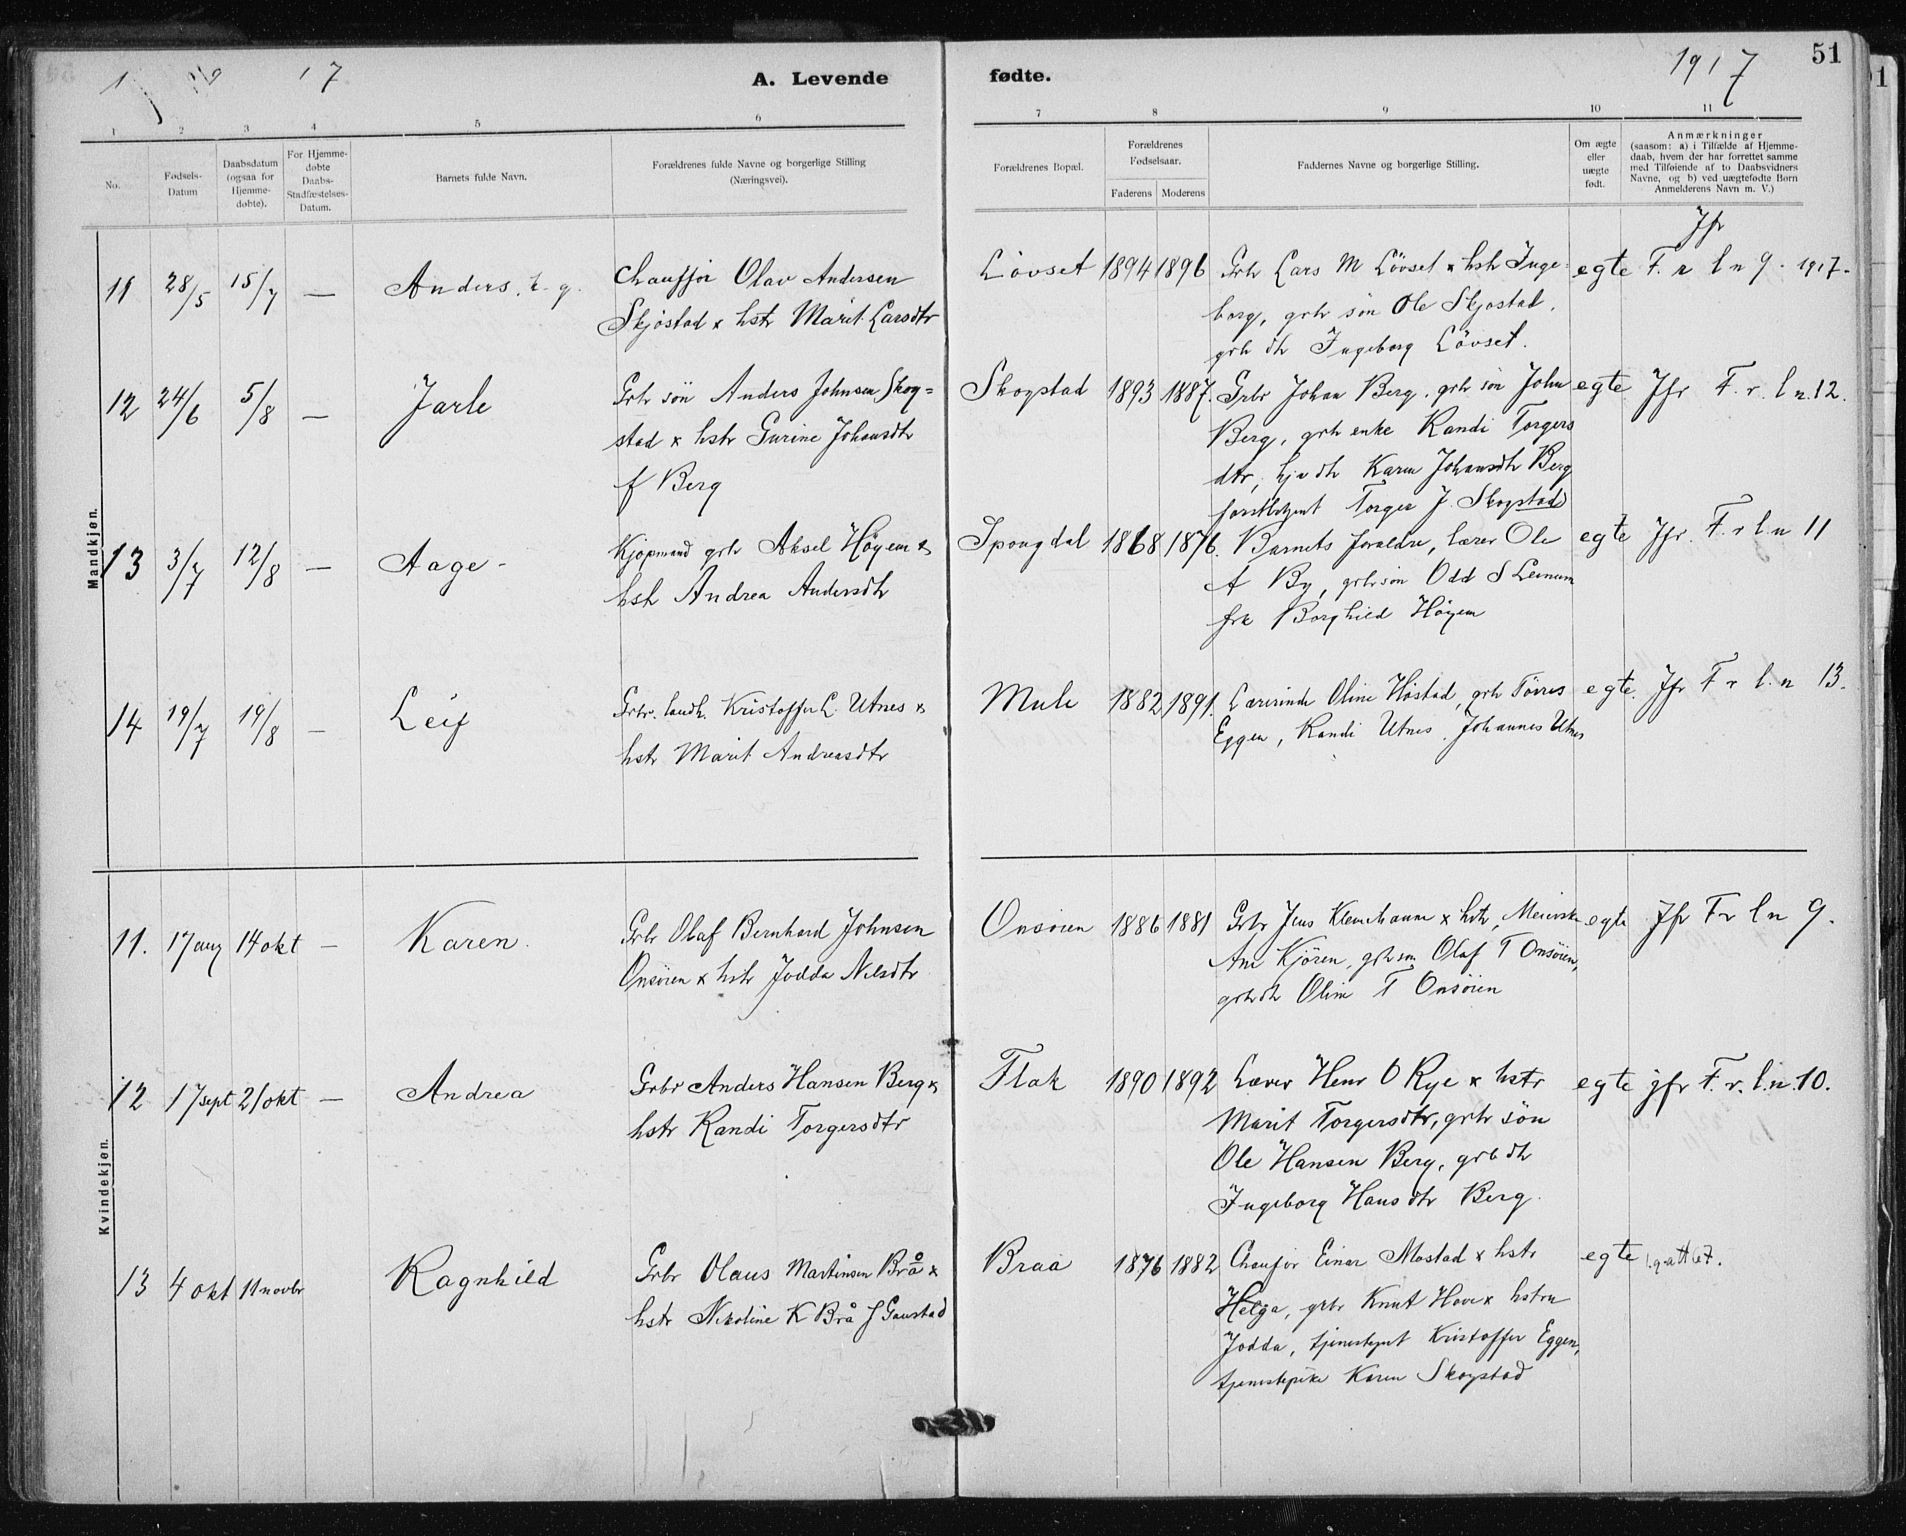 1917
A. Levende
fødte.
1917
51
1 2 3 4 5 6 7 8 9 10 11
No.
Fødsels-
Datum
Daabsdatum
(ogsaa for
Hjemme-
døbte).
For Hjemme-
døbte
Daabs-
Stadfæstelses-
Datum.
Barnets fulde Navn.
Forældrenes fulde Navne og borgerlige Stilling
(Næringsvei).
Forældrenes Bopæl.
Forældrenes
Fødselsaar.
Faderens
Moderens
Faddernes Navne og borgerlige Stilling.
Om ægte
eller
uægte
født.
Anmærkninger
(saasom: a) i Tilfælde af Hjemme-
daab, hvem der har forrettet samme
med Tilføiende af to Daabsvidners
Navne, og b) ved uægtefødte Børn
Anmelderens Navn m. V.)
Mandkjøn.
11 28/5 15/7 — Anders
Chauffør Olav Andersen
Skjøstad x hstr Marit Larsdtr
Løvset 1894 1896
Grbr Lars M Løvset x hstr Inge
borg, grbr søn Ole Skjøstad.
grbr dtr Ingeborg Løvset.
egte
Jfr
F. r l n 9. 1917.
12 24/6 5/8 — Jarle
Grbr søn Anders Johnsen Skog=
stad x hstr Gurine Johansdtr
f Berg
Skogstad 1893 1887.
Grbr Johan Berg, grbr søn John
Berg, grbr enke Randi Torgers
dtr, hjv dtr Karen Johansdtr Berg
forstbetjent Torger J. Skogstad
egte Jfr F. r. l n. 12.
13 3/7 12/8 — Aage -
Kjøpmand grbr Aksel Høyem x
hstr Andrea Andersdtr
Spongdal 1868 1876.
Barnets foreldre, lærer Ole
A By, grbr søn Odd S Leinum
frk Borghild Høyem
egte Jfr. F. r l. n 11
14 19/7 19/8 — Leif
Grbr. landh. Kristoffer L. Utnes x
hstr Marit Andreasdtr
Mule 1882 1891.
Lærerinde Oline Høstad, grbr Tørres
Eggen, Randi Utnes. Johannes Utnes
egte. Jfr F r l. n 13.
Kvindekjøn.
11. 17 aug 14 okt — Karen.
Grbr Olaf Bernhard Johnsen
Onsøien x hstr Jodda Nilsdtr
Onsøien 1886 1881
Grbr Jens Klemethaune x hstr, Meierske
Ane Kjøren, grbr søn Olaf T Onsøien,
grbr dtr Oline T Onsøien
egte Jfr F r l n 9.
12 17 sept 21 okt — Andrea
Grbr Anders Hansen Berg x
hstr Randi Torgersdtr
Flak 1890 1892
Lærer Henr O Rye x hstr
Marit Torgersdtr, grbr søn
Ole Hansen Berg, grb dtr
Ingeborg Hansdtr Berg.
egte jfr F. r. l. n. 10.
13 4 okt 11 novbr Ragnhild
Grbr Olaus Martinsen Brå x
hstr Nikoline K Brå f Gaustad
Braa 1876 1882
Chaufør Einar Mostad x hstr
Helga, grbr Knut Hove x hstru
Jodda, tjenestegut Kristoffer Eggen,
tjenestepike Karen Skogstad
egte